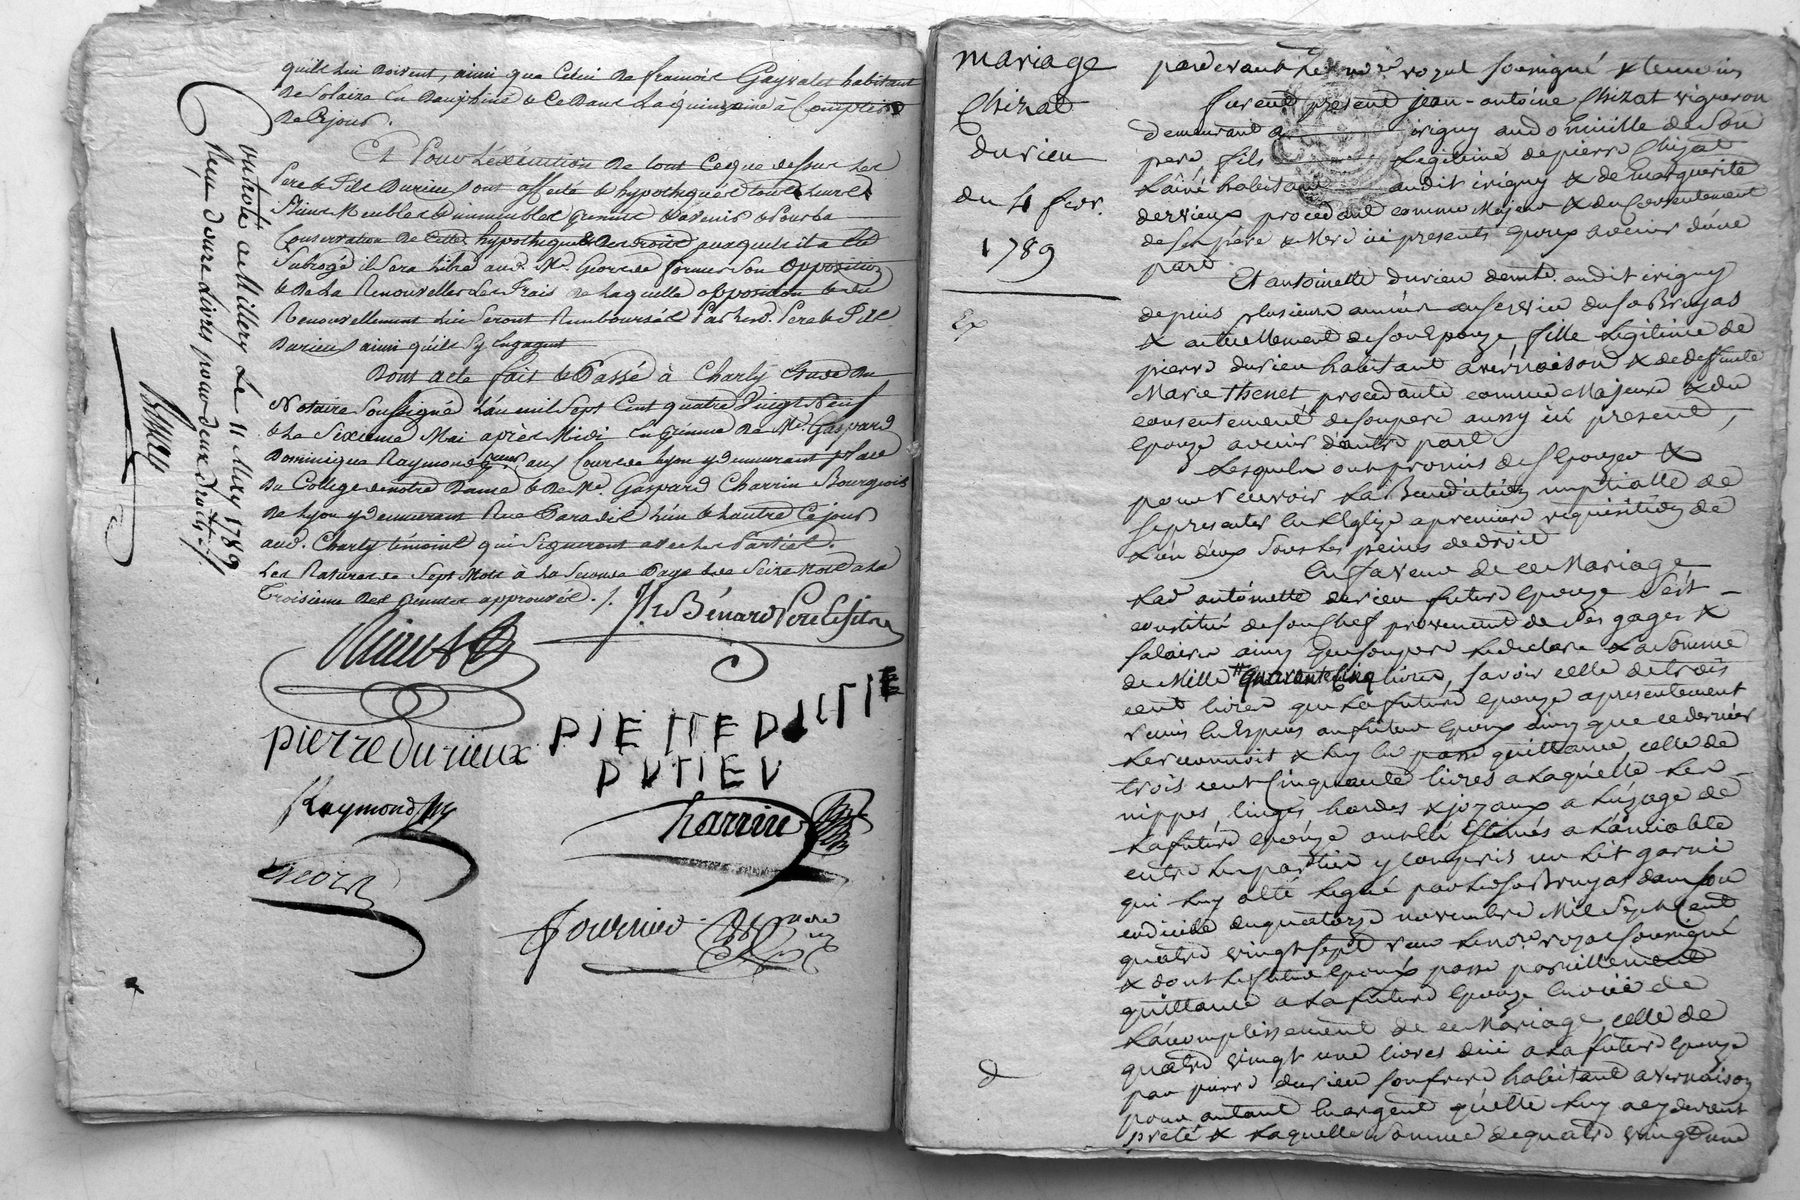 qu'ils lui doivent, ainsi que Celui de francois Gayvalet habitant
de Solaize en Dauphiné & Ce Dans La quinzaine à Compter
de Cejour.
Et Pour L'éxécution de tout Ceque dessus Les
Pere & Fils Durieu ont affecté & hypothequés tous Leurs
Biens Meubles & immeubles presents & avenir & Pour La
Conservation de Cette hypotheque & des droits auxquels il a été
Subrogé il Sera Libre aud. Sr. de former Son Opposition
& De La Renouveller Les Frais de Laquelle opposition & de
Renouvellement Lui Seront Remboursés Par Lesd. Pere & Fils
Durieu ainsi qu'ils Sy Engagent
Dont acte fait & Passé à Charly Etude du
Notaire Soussigné L'an mil Sept Cent quatre Vingt Neuf
& Le Sixieme Mai après Midi En presence de Me. Gaspard
Dominique Raymond aux Cours de Lyon y demeurant place
Du College de notre Dame & de Me. Gaspard Charrin Bourgeois
de Lyon y demeurant Rue Paradis L'un & Lautre Ce jour
aud. Charly témoins qui Signeront avec Les Parties.
Les Ratures de Sept Mots à La Seconde Page & de Seize Mots a La
Troisieme des presentes approuvés ./.
Bénard Pere
pierre durieux
PIERRE DURIEU
Raymond
Charrin
Fournier
Controlé a Millery Le 11 May 1789
Reçu douze Livres pour deux droits ./.
mariage
Chizat
durieu
du 4 fevr.
1789
Ex
pardevant Le nore. royal soussigné & temoins
furent present jean-antoine Chizat vigneron
demeurant a irigny au domicille de Son
pere, fils Legitime de pierre Chizat
Lainé habitant audit irigny & de marguerite
dervieux procedant comme Majeur & du Consentement
de Ses pere & Mere ici presents Epoux avenir d'une
part
Et antoinette durieu demte. audit irigny
depuis plusieurs années au service du Sr Bruyas
& actuellement de Son Epouze, fille Legitime de
pierre durieu habitant a vernaison & de deffunte
Marie Thenet procedante comme Majeure & du
consentement de Son pere aussy ici present,
Epouze avenir d'autre part
Lesquels ont promis de S'Epouzer &
pour recevoir La Benediction nuptialle de
Se presenter En L'Eglize a premiere requisition de
L'un deux Sous Les peines de droit
En faveur de ce Mariage
Lad antoinette durieu future Epouze S'est
constitué de Son Chef provenant de Ses gages &
Salaires ainsy que Son pere Le declare La Somme
de Mille quarante Cinq livres, Savoir celle de trois
cent livres que La future Epouze a presentement
remis En Especes au futur Epoux ainsy que ce dernier
Le reconnoit & Luy En passe quittance, celle de
trois cent Cinquante livres a Laquelle Les
nippes, linges, hardes & joyaux a L'uzage de
La future Epouze ont été Estimés a L'amiable
entre Les parties y compris un Lit garni
qui Luy a été Legué par Le Sr Bruyas dans son
codicile du quatorze novembre Mil Sept Cent
quatre vingt Sept reçu Le nore. royal Soussigné
& dont Le futur Epoux passe pareillement
quittance a La future Epouze En de
L'accomplissement de ce Mariage, celle de
quatre vingt une livres due a La future Epouze
par pierre durieu Son frere habitant a vernaison
pour autant En argent qu'elle Luy a cy devant
prêté & Laquelle Somme de quatre vingt une